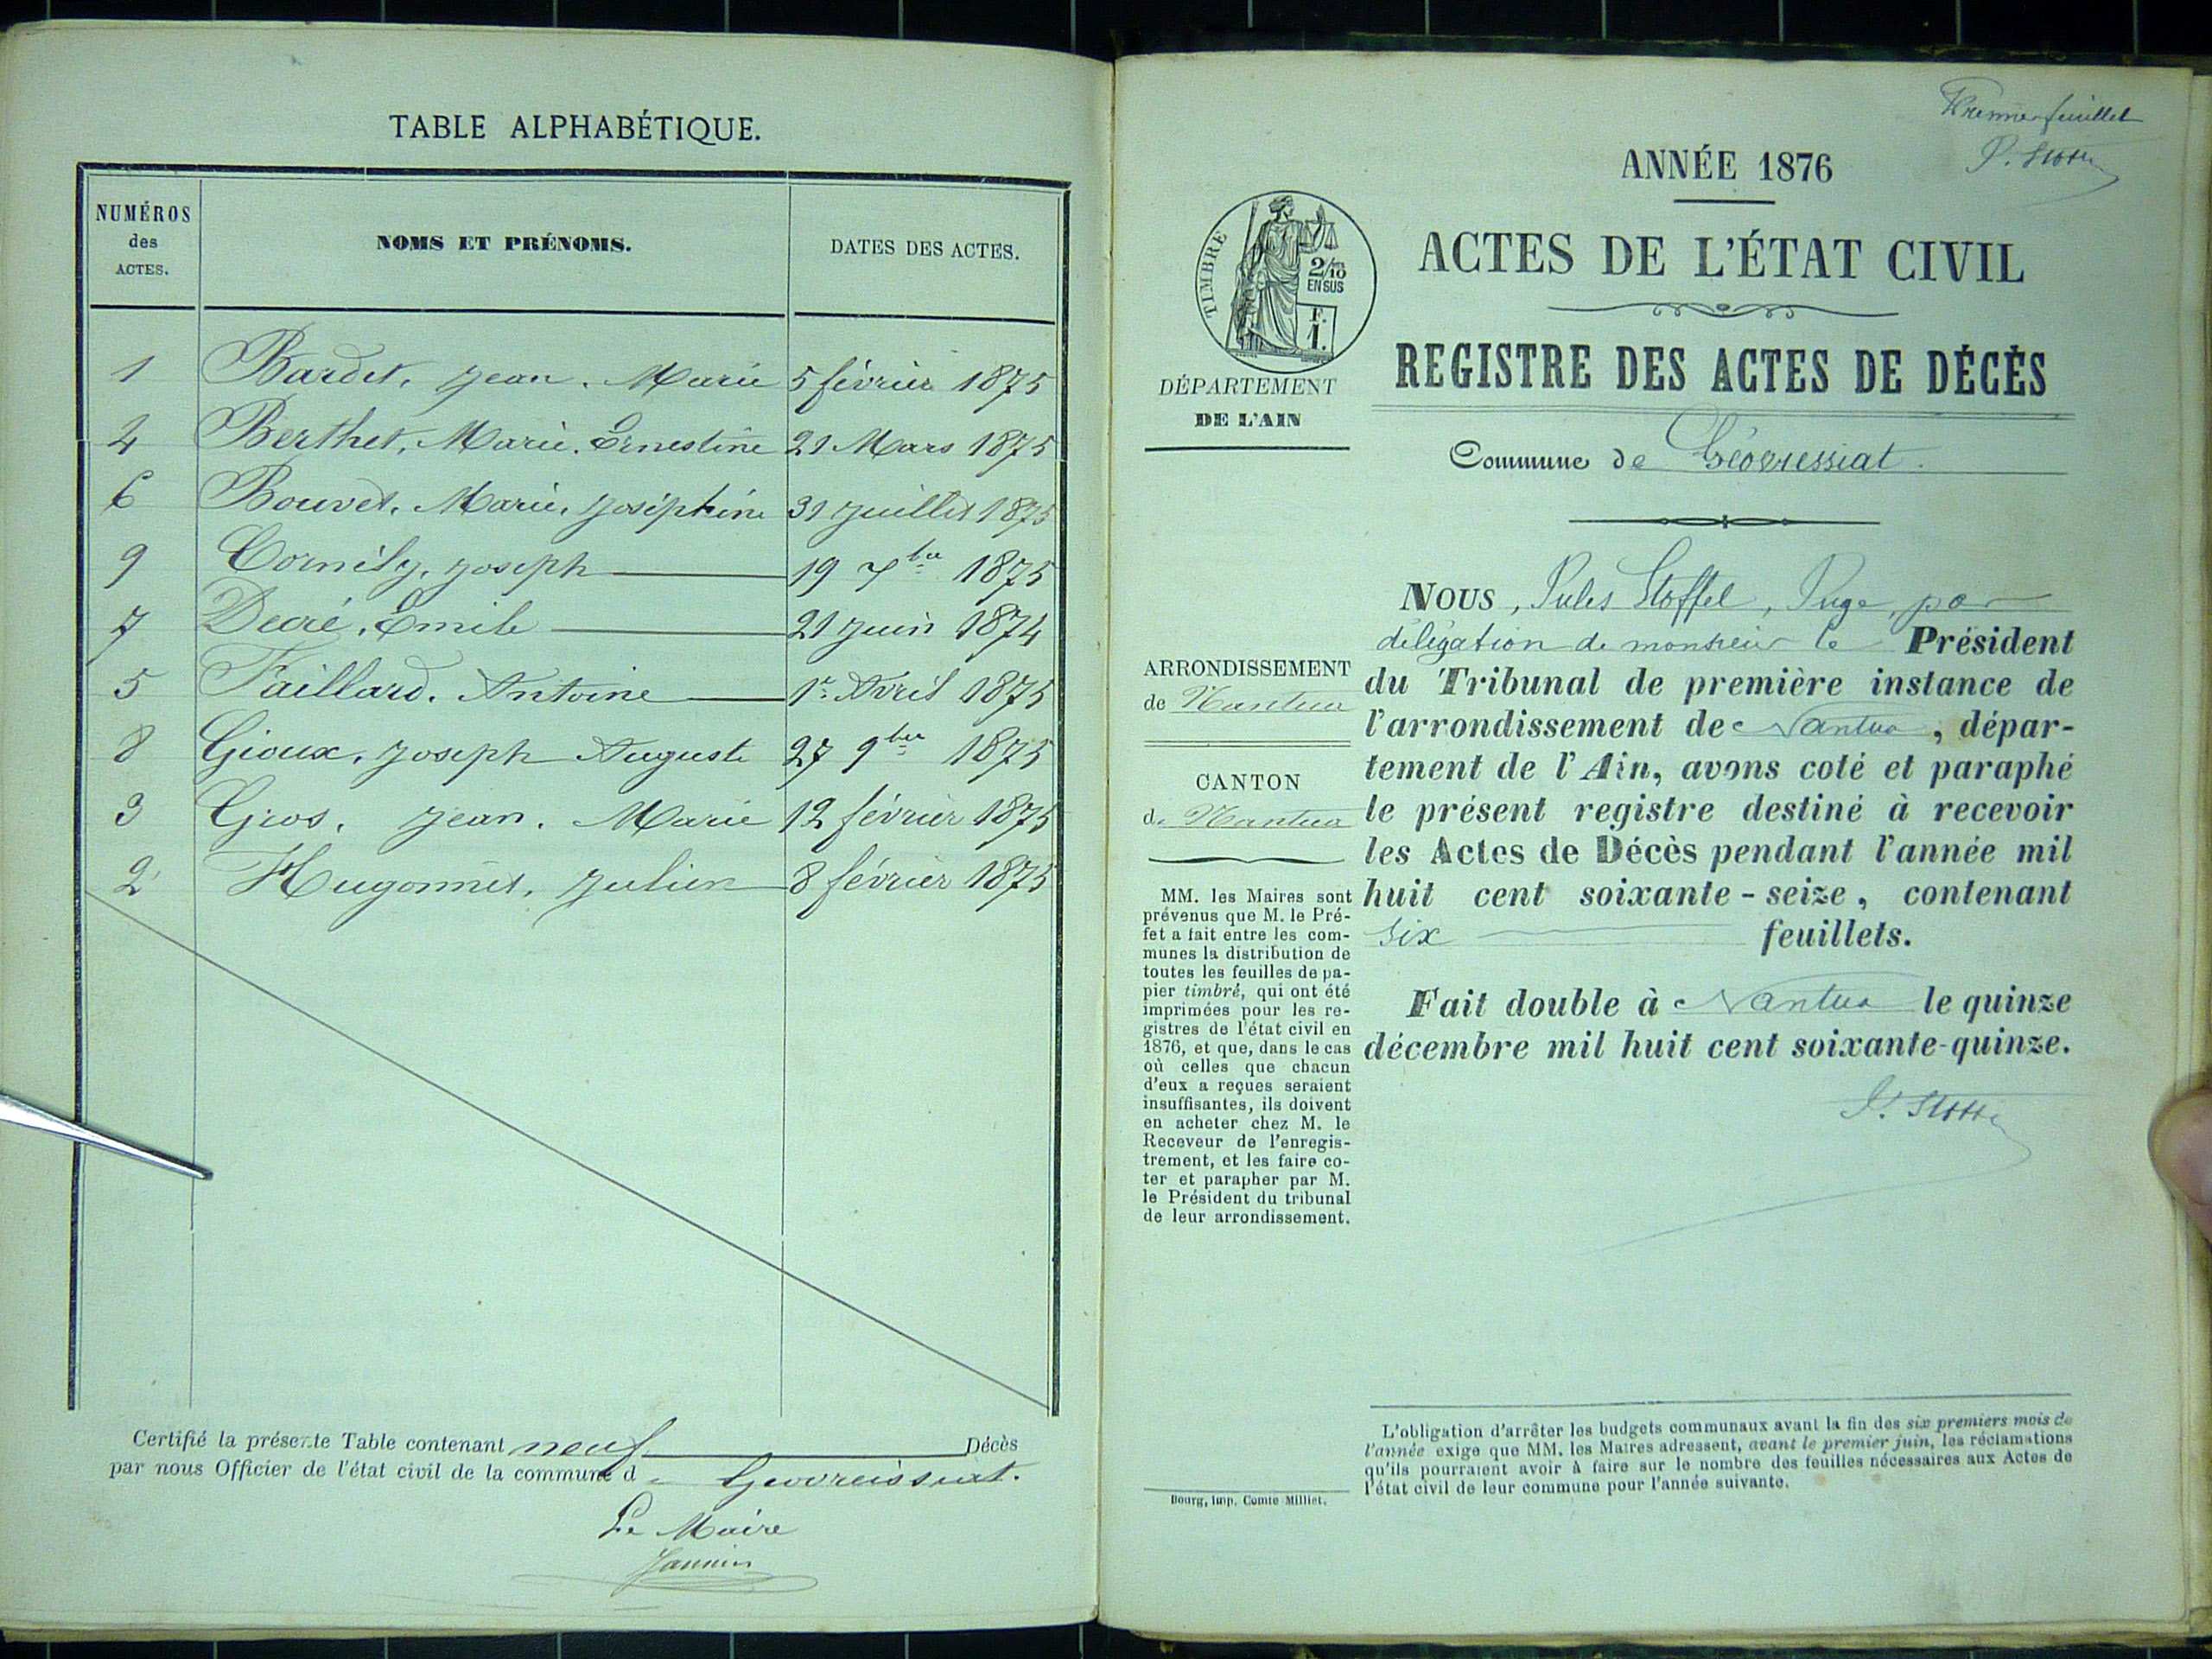 TABLE ALPHABÉTIQUE.
NUMÉROS des ACTES. NOMS ET PRÉNOMS. DATES DES ACTES.
1 Bardet, Jean. Marie 5 février 1875
4 Berthet, Marie. Ernestine 21 Mars 1875
6 Bouvet, Marie, Joséphine 31 Juillet 1875
9 Cornily, Joseph 19 Xbre 1875
7 Decré, Emile 21 Juin 1874
5 Faillard, Antoine 1r Avril 1875
8 Gioux, Joseph Auguste 27 9bre 1875
3 Gros, Jean. Marie 12 février 1875
2 Hugonnet, Julien 8 février 1875
Certifié la présente Table contenant neuf Décès
par nous Officier de l'état civil de la commune d Géovreissiat.
Le Maire
Premier feuillet
ANNÉE 1876
TIMBRE
2/10 EN SUS
F. 1.
ACTES DE L'ÉTAT CIVIL
REGISTRE DES ACTES DE DÉCÈS
DÉPARTEMENT
DE L'AIN
Commune de Géovressiat.
ARRONDISSEMENT
de Nantua
CANTON
de Nantua
MM. les Maires sont
prévenus que M. le Pré-
fet a fait entre les com-
munes la distribution de
toutes les feuilles de pa-
pier timbré, qui ont été
imprimées pour les re-
gistres de l'état civil en
1876, et que, dans le cas
où celles que chacun
d'eux a reçues seraient
insuffisantes, ils doivent
en acheter chez M. le
Receveur de l'enregis-
trement, et les faire co-
ter et parapher par M.
le Président du tribunal
de leur arrondissement.
Nous, Jules Stoffel, Juge, par
délégation de monsieur le Président
du Tribunal de première instance de
l'arrondissement de Nantua, dépar-
tement de l'Ain, avons coté et paraphé
le présent registre destiné à recevoir
les Actes de Décès pendant l'année mil
huit cent soixante-seize, contenant
six feuillets.
Fait double à Nantua le quinze
décembre mil huit cent soixante-quinze.
L'obligation d'arrêter les budgets communaux avant la fin des six premiers mois de
l'année exige que MM. les Maires adressent, avant le premier juin, les réclamations
qu'ils pourraient avoir à faire sur le nombre des feuilles nécessaires aux Actes de
l'état civil de leur commune pour l'année suivante.
Bourg, Imp. Comte-Milliet.